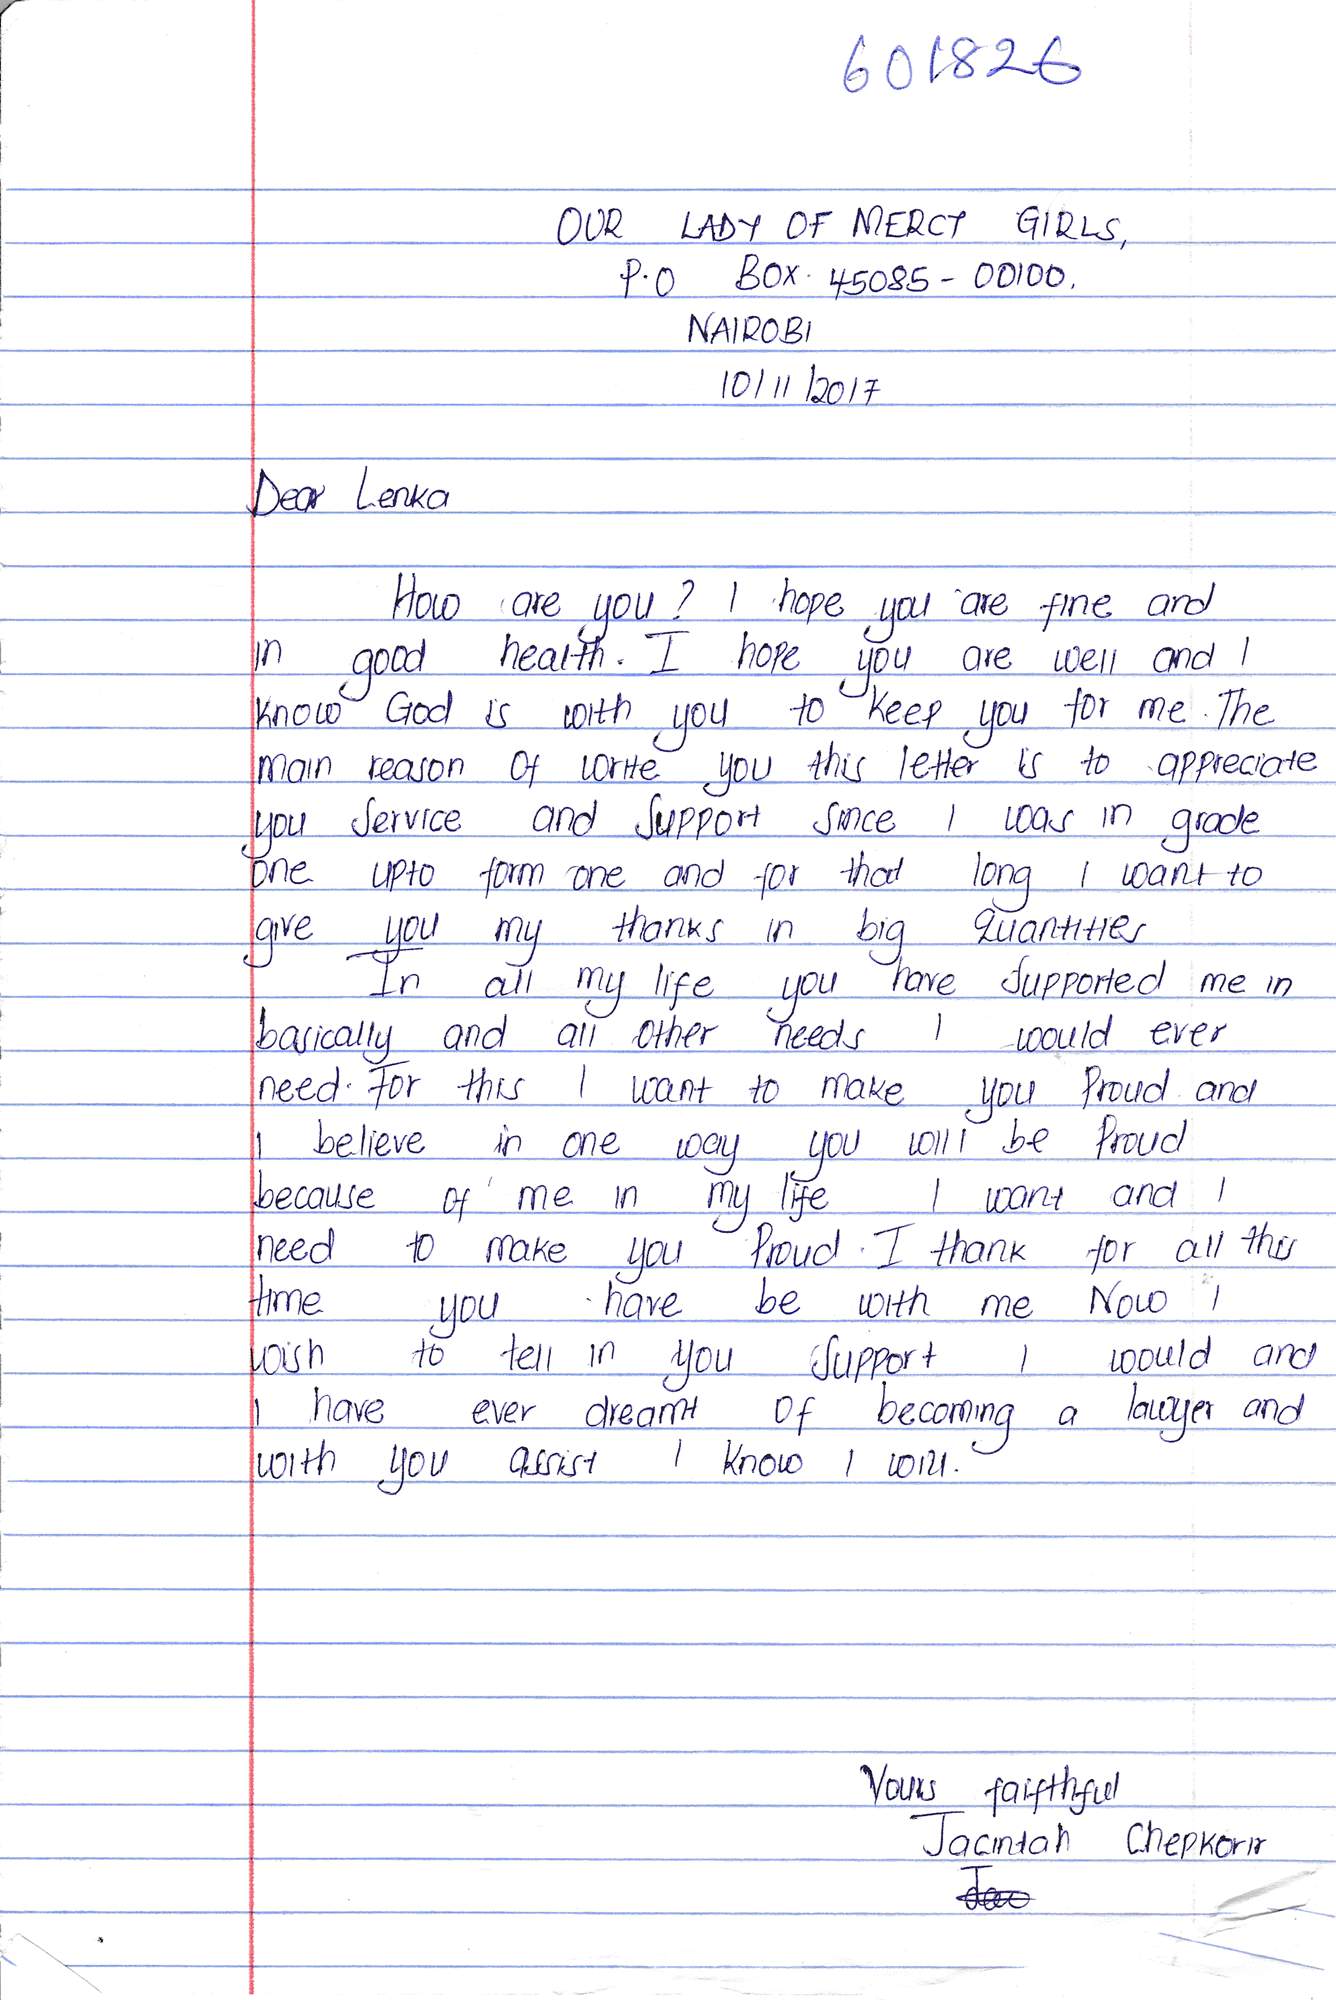 601826
OUR LADY OF MERCY GIRLS,
P.O BOX. 45085 - 00100.
NAIROBI
10/11/2017
Dear Lenka
How are you? I hope you are fine and
in good health. I hope you are well and I
know God is with you to keep you for me. The
main reason of write you this letter is to appreciate
you service and support since I was in grade
one upto form one and for that long I want to
give you my thanks in big quantities
In all my life you have supported me in
basically and all other needs I would ever
need. For this I want to make you proud and
I believe in one way you will be proud
because of me in my life I want and I
need to make you proud. I thank for all this
time you have be with me Now I
wish to tell in you support I would and
I have ever dreamt of becoming a lawyer and
with you assist I know I will.
Yours faifthful
Jacintah Chepkorir